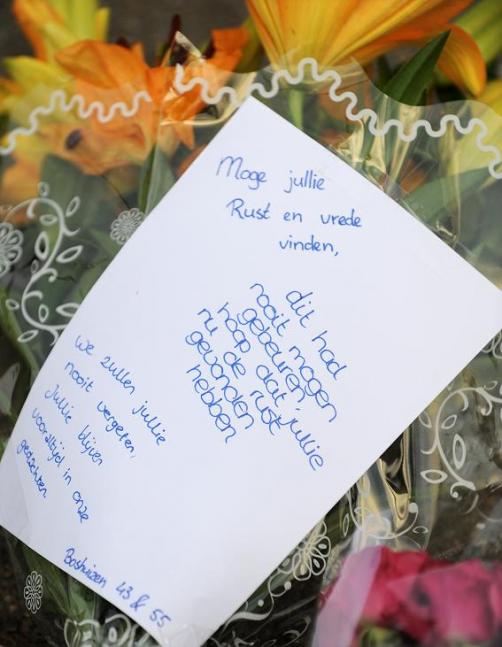 Moge jullie
Rust en vrede
vinden,
dit had
nooit mogen
gebeuren
hoop dat jullie
nu de rust
gevonden
hebben
We zullen jullie
nooit vergeten,
Jullie blijven
vooraltijd in onze
gedachten
Boshuizen 43 & 55